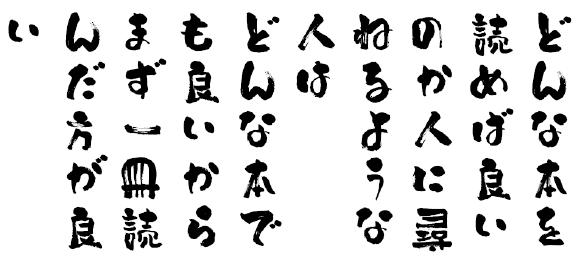 どんな本を
読めば良い
のか人に尋
ねるような
人は
どんな本で
も良いから
まず一冊読
んだ方が良
い